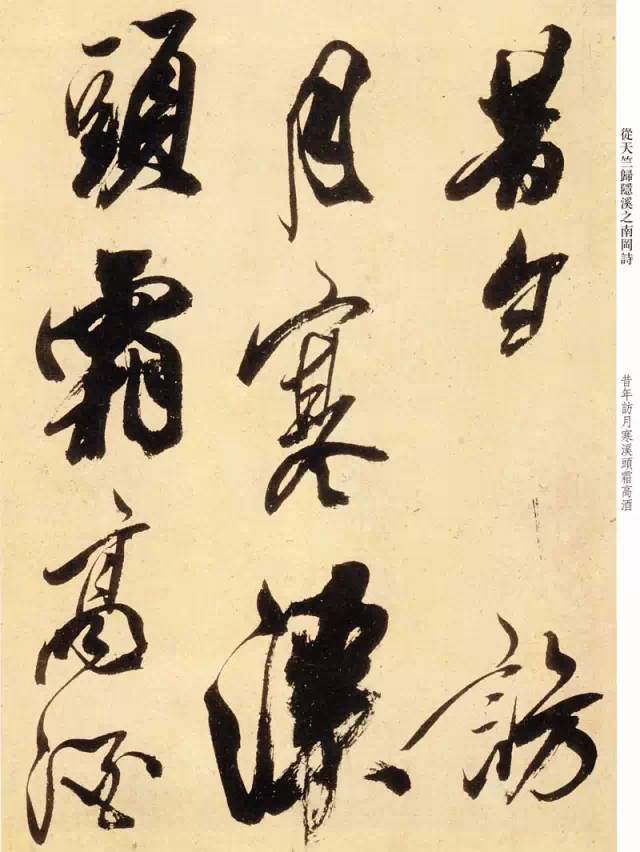 昔年訪
月寒溪
頭霜高酒
從天竺歸隱溪之南岡詩
昔年訪月寒溪頭霜高酒